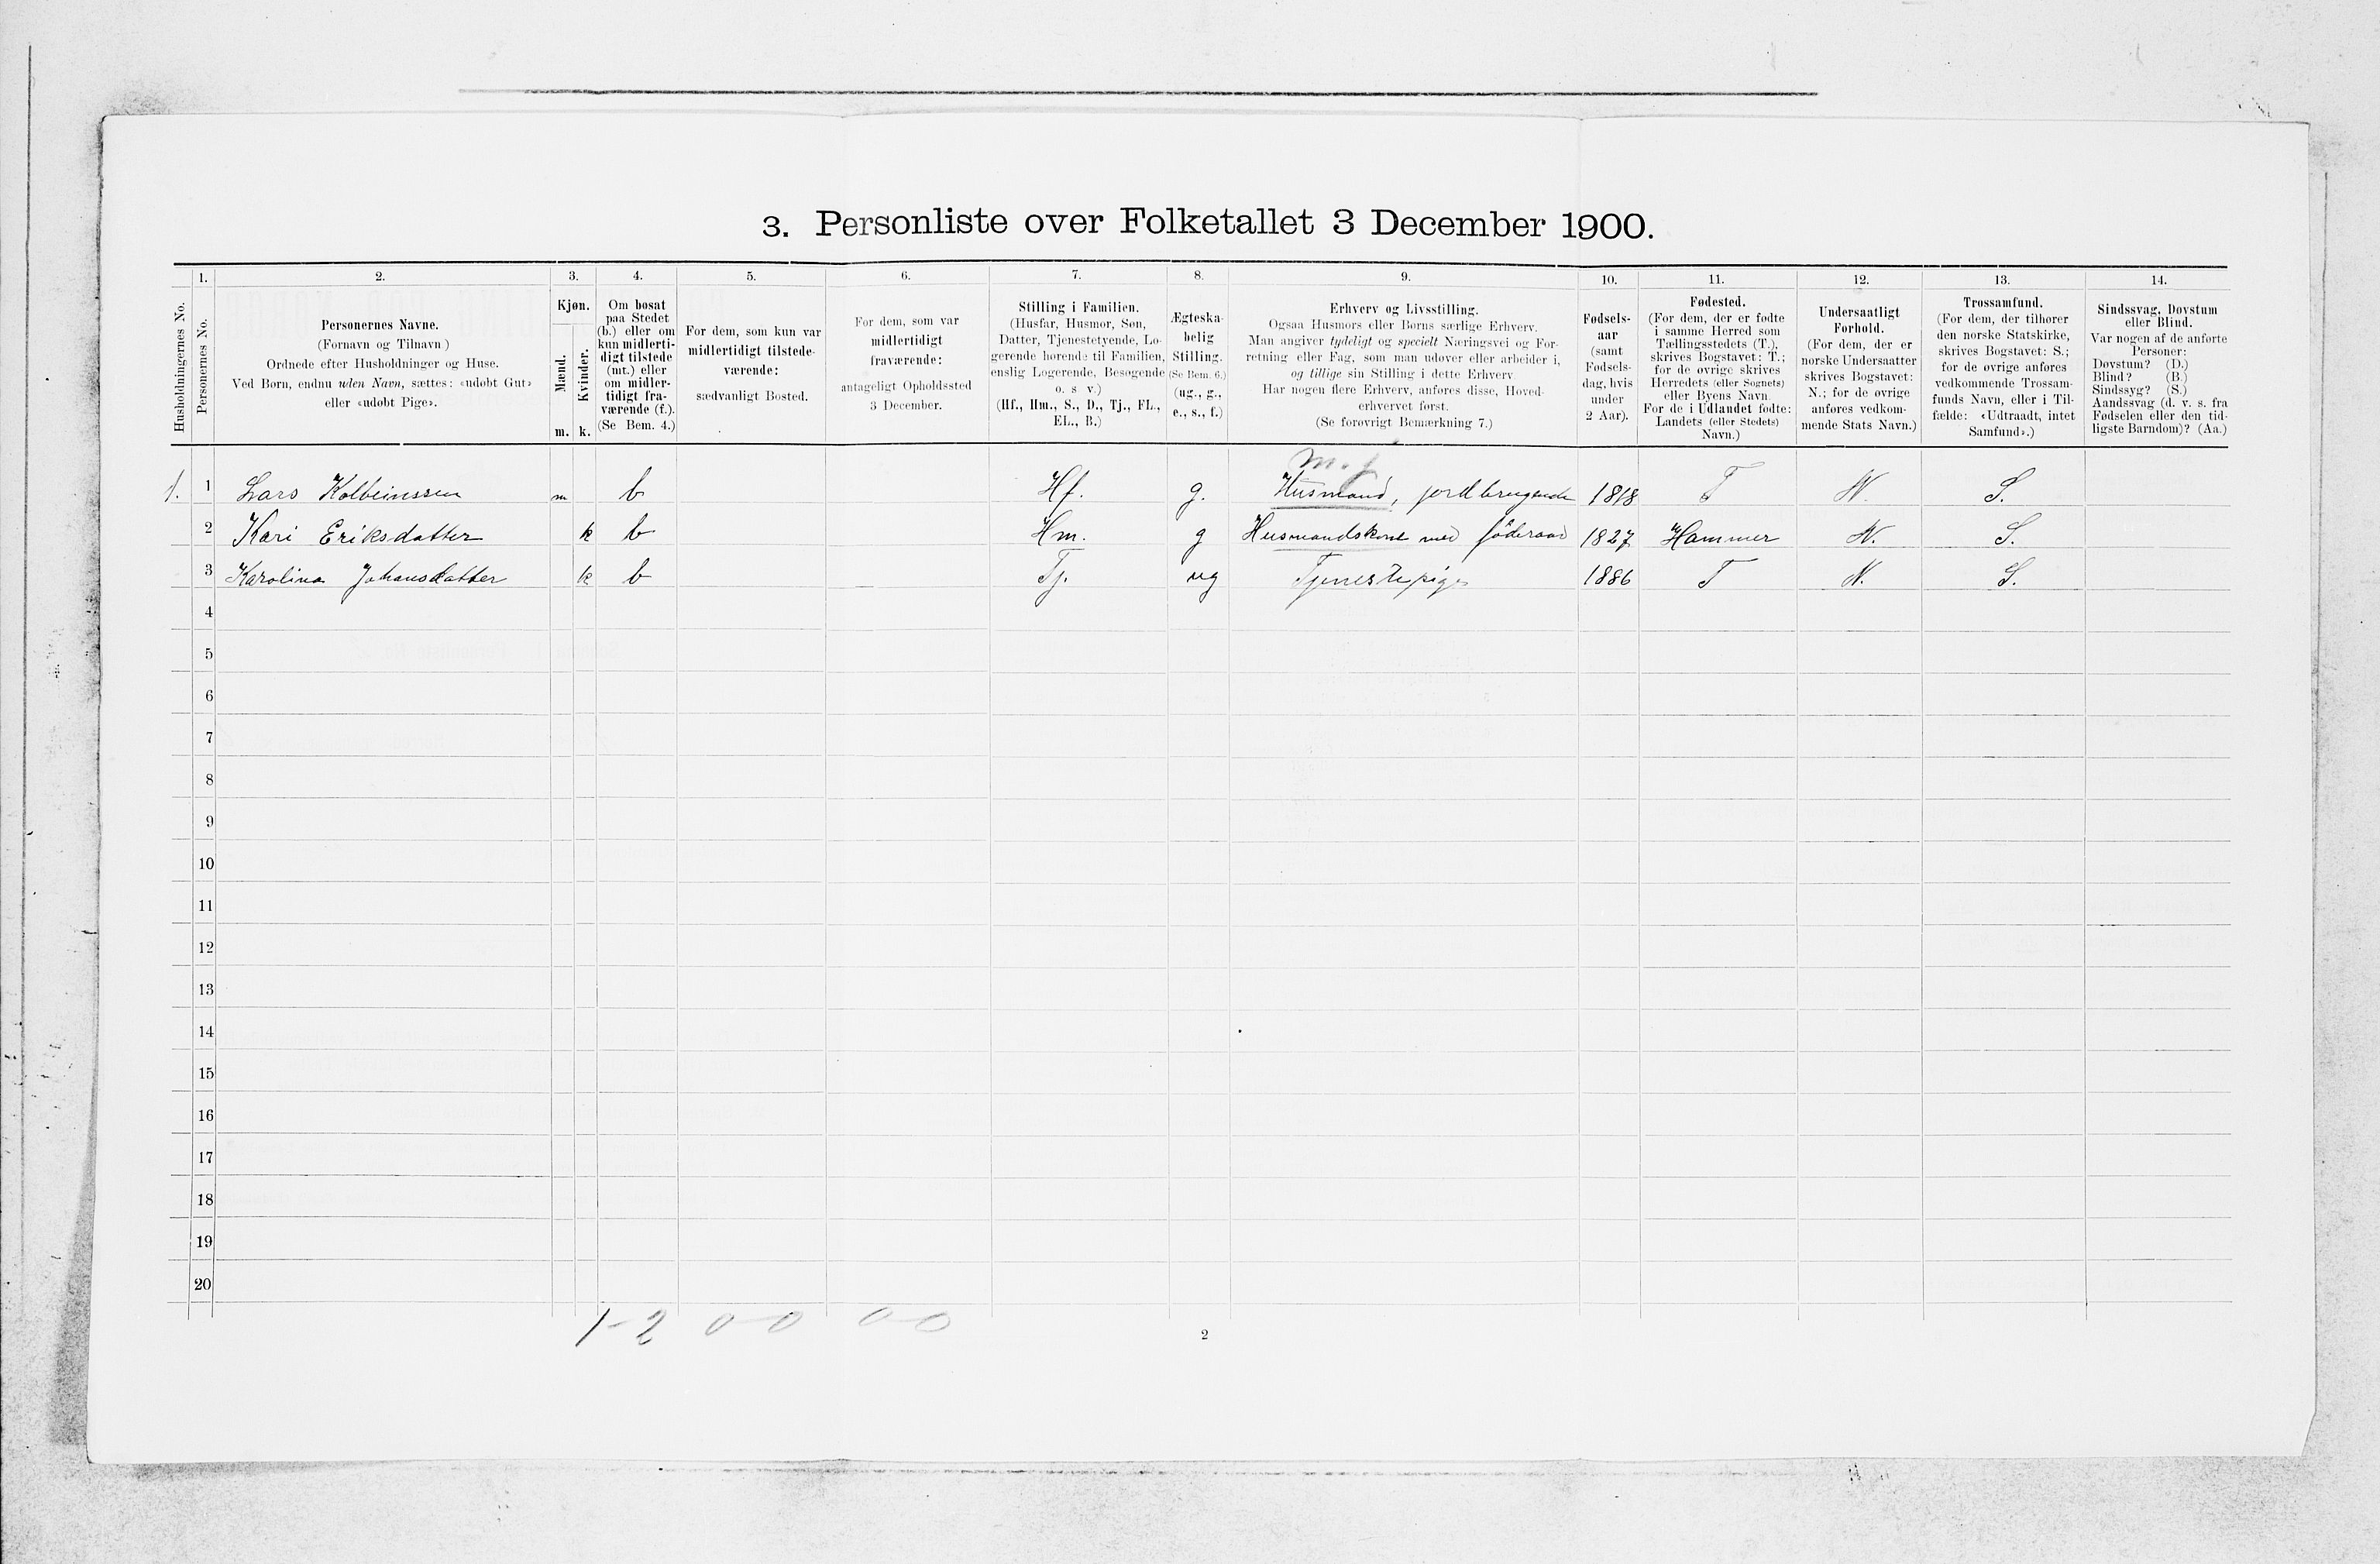 3. Personliste over Folketallet 3 December 1900.
1. 2. 3. 4. 5. 6. 7. 8. 9. 10. 11. 12. 13. 14.
Husholdningernes No.
Personernes No.
Personernes Navne.
(Fornavn og Tilnavn.)
Ordnede efter Husholdninger og Huse.
Ved Børn, endnu uden Navn, sættes: «udøbt Gut»
eller «udøbt Pige».
Kjøn.
Mænd.
Kvinder.
m. k.
Om bosat
paa Stedet
(b.) eller om
kun midlerti-
digt tilstede
(mt.) eller
om midler-
tidigt fra-
værende (f.).
(Se Bem. 4.)
For dem, som kun var
midlertidigt tilstede-
værende:
sædvanligt Bosted.
For dem, som var
midlertidigt
fraværende:
antageligt Opholdssted
3 December.
Stilling i Familien.
(Husfar, Husmor, Søn,
Datter, Tjenestetyende, Lo-
gerende hørende til Familien,
enslig Logerende, Besøgende
o. s v.)
(Hf., Hm., S., D., Tj., FL.,
EL., B.)
Ægteska-
belig
Stilling.
(Se Bem. 6.)
(ug., g.,
e., s., f.)
Erhverv og Livsstilling.
Ogsaa Husmors eller Børns særlige Erhverv.
Man angiver tydeligt og specielt Næringsvei og For-
retning eller Fag, som man udøver eller arbeider i,
og tillige sin Stilling i dette Erhverv
Har nogen flere Erhverv, anføres disse, Hoved-
erhvervet først.
(Se forøvrigt Bemærkning 7.)
Fødsels-
aar
(samt
Fødsels-
dag, hvis
under
2 Aar).
Fødested.
(For dem, der er fødte
i samme Herred som
Tællingsstedets (T.),
skrives Bogstavet: T.;
for de øvrige skrives
Herredets (eller Sognets)
eller Byens Navn.
For de i Udlandet fødte:
Landets (eller Stedets)
Navn.)
Undersaatligt
Forhold.
(For dem, der er
norske Undersaatter
skrives Bogstavet:
N.; for de øvrige
anføres vedkom-
mende Stats Navn.)
Trossamfund.
(For dem, der tilhører
den norske Statskirke,
skrives Bogstavet: S.;
for de øvrige anføres
vedkommende Trossam-
funds Navn, eller i Til-
fælde: «Udtraadt, intet
Samfund».)
Sindssvag, Døvstum
eller Blind.
Var nogen af de anførte
Personer:
Døvstum? (D.)
Blind? (B.)
Sindssyg? (S.)
Aandssvag (d. v. s. fra
Fødselen eller den tid-
ligste Barndom)? (Aa.)
m. f
1. 1 Lars Kolbeinssen m b Hf. g. Husmand, jordbrugende 1818 T N. S.
2 Kari Eriksdatter k b Hm. g Husmandskone med föderaad 1827 Hammer N. S.
3 Karolina Johansdatter k b Tj. ug Tjenestepige 1886 T N. S.
4
5
6
7
8
9
10
11
12
13
14
15
16
17
18
19
20
1-2 0-0 0-0
2